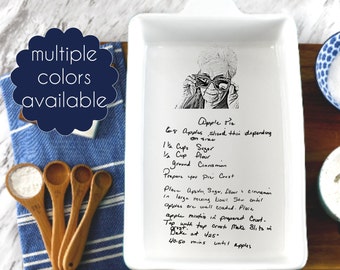 multiple
colors
available
Apple Pie
6-8 Apples, depending
on size
1 1/2 Cups Sugar
1/2 Cup flour
Ground Cinnamon
Prepare your Pie Crust
Place Apples, Sugar, flour & cinnamon
in large mixing bowl. Stir until
apples are well coated. Place
apple mixture in prepared Crust.
Top with top crust. Make Slits in
crust.
Bake at 425°
40-50 mins until apples